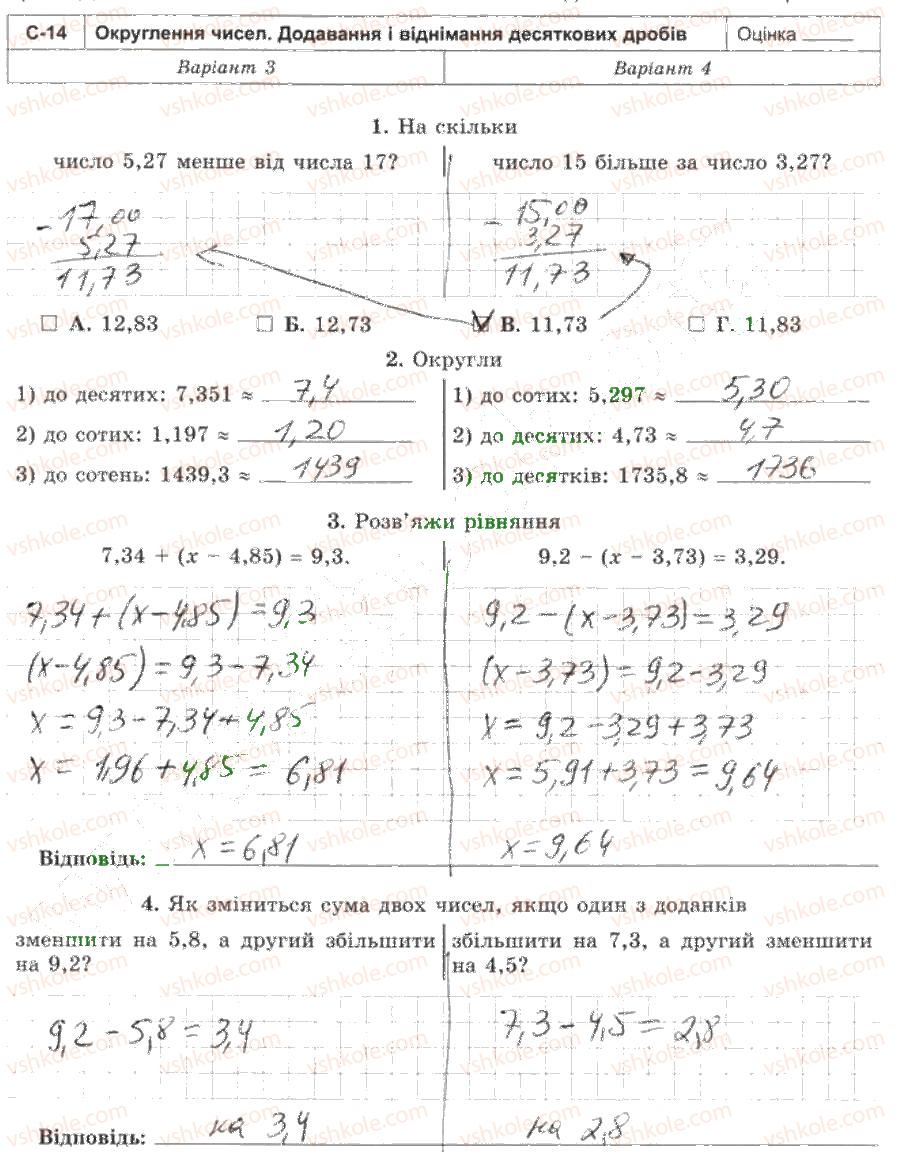 С-14 Округлення чисел. Додавання і віднімання десяткових дробів Оцінка
Варіант 3 Варіант 4
1. На скільки
число 5,27 менше від числа 17? число 15 більше за число 3,27?
- 17,00 - 15,00
5,27 3,27
11,73 11,73
А. 12,83 Б. 12,73 В. 11,73 Г. 11,83
2. Округли
1) до десятих: 7,351 ≈ 7,4 1) до сотих: 5,297 ≈ 5,30
2) до сотих: 1,197 ≈ 1,20 2) до десятих: 4,73 ≈ 4,7
3) до сотень: 1439,3 ≈ 1439 3) до десятків: 1735,8 ≈ 1736
3. Розв'яжи рівняння
7,34 + (x − 4,85) = 9,3. 9,2 − (x − 3,73) = 3,29.
7,34 + (x − 4,85) = 9,3 9,2 − (x − 3,73) = 3,29
(x − 4,85) = 9,3 − 7,34 (x − 3,73) = 9,2 − 3,29
x = 9,3 − 7,34 + 4,85 x = 9,2 − 3,29 + 3,73
x = 1,96 + 4,85 = 6,81 x = 5,91 + 3,73 = 9,64
Відповідь: x = 6,81 x = 9,64
4. Як зміниться сума двох чисел, якщо один з доданків
зменшити на 5,8, а другий збільшити збільшити на 7,3, а другий зменшити
на 9,2? на 4,5?
9,2 − 5,8 = 3,4 7,3 − 4,5 = 2,8
Відповідь: на 3,4 на 2,8
vshkole.com